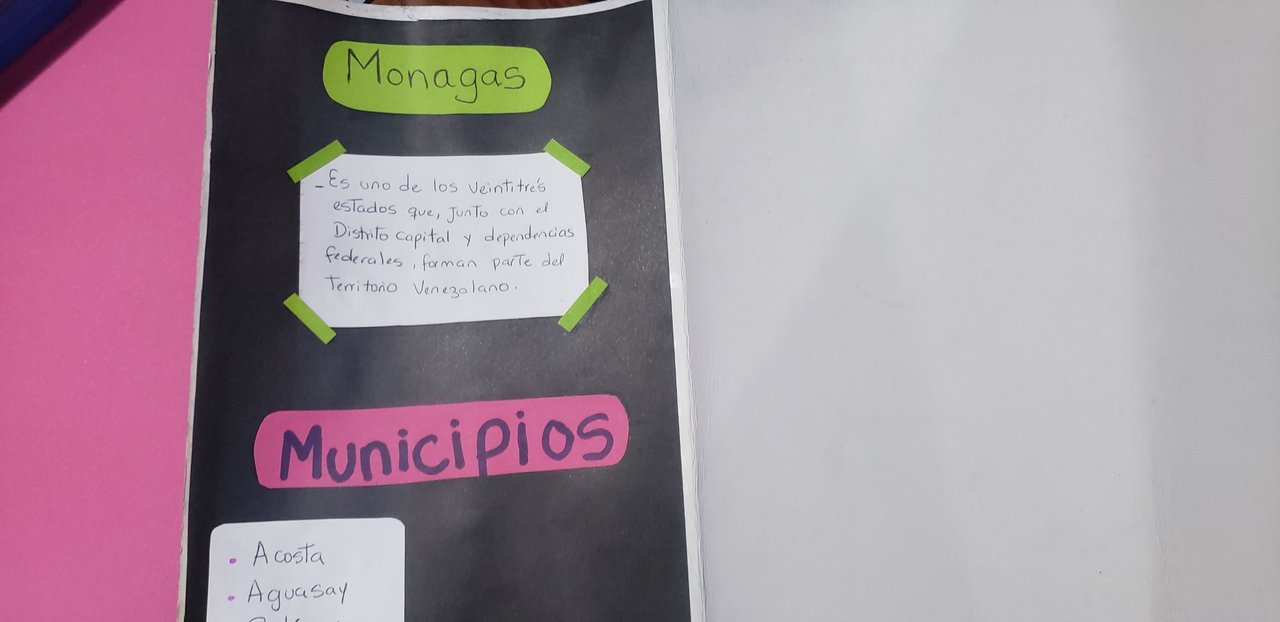 Monagas
- Es uno de los veintitrés
estados que, junto con el
Distrito capital y dependencias
federales, forman parte del
Territorio Venezolano.
Municipios
• Acosta
• Aguasay